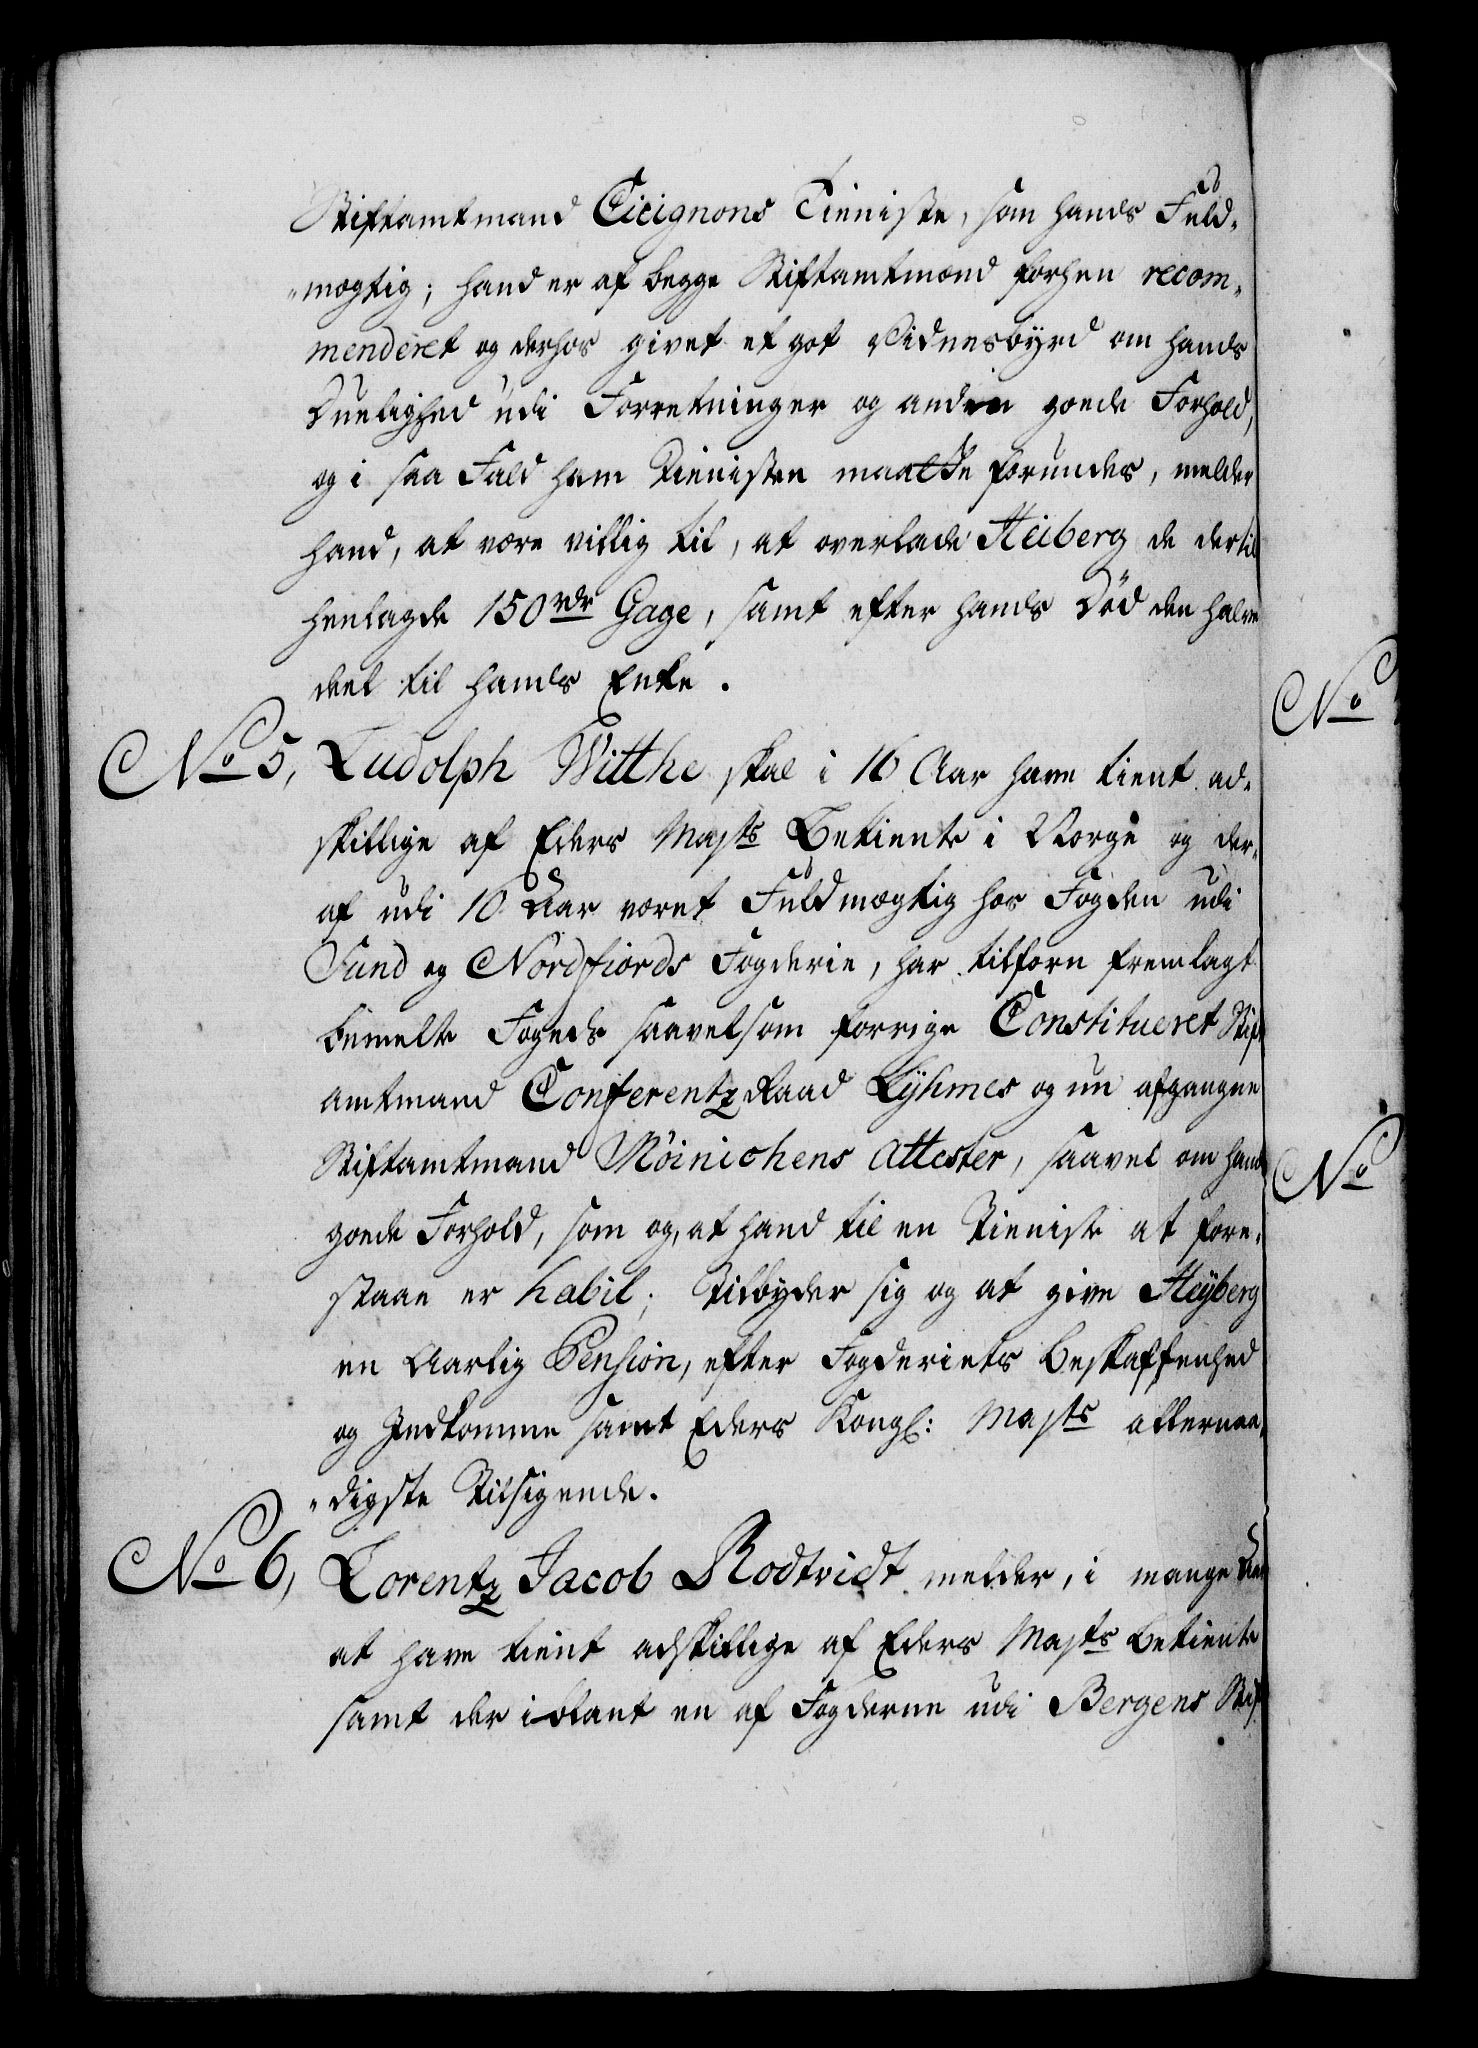 Stiftamtmand Cicignons Tieniste, som hands Fuld-
mægtig; hand er af begge Stiftamtmænd forhen recom-
menderet og derhos givet et got Vidnesbyrd om hands
Duelighed udi Forretninger og anden goede Forhold,
og i saa Fald ham Tienisten maatte forundes, melder
hand, at være villig til, at overlade Heiberg de dertil
henlagde 150 rdr Gage, samt efter hands Død den halve
deel til hands Enke.
No 5, Ludolph Witthe skal i 16 Aar have tient ad-
skillige af Eders Majts Betiente i Norge og der-
af udi 10 Aar været Fuldmægtig hos Fogden udi
Sund og Nordfiords Fogderie, har tilforn fremlagt
bemelte Fogeds saavelsom forrige Constitueret Stift
amtmand Conferentz Raad Lyhmes og nu afgangne
Stiftamtmand Möinichens Attester, saavel om hands
goede Forhold, som og, at hand til en Tieniste at fore-
staae er habil; Tilbyder sig og at give Heyberg
en Aarlig Pension, efter Fogderiets Beskaffenhed
og Indkomme samt Eders Kongl: Majts allernaa-
digste Tilsigende.
No 6, Lorentz Jacob Rodtvidt melder, i mange Aar
at have tient adskillige af Eders Majts Betiente
samt der iblant en af Fogderne udi Bergens Stift
No
No